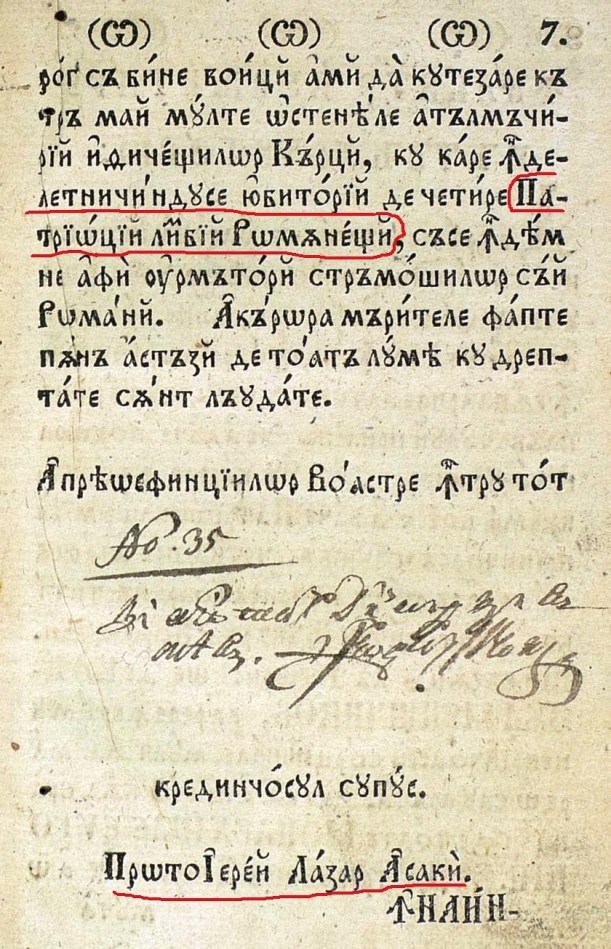 (Ѡ) (Ѡ) (Ѡ) 7.
ро́г съ би́не вои́цй а҆мй да̀ кутеза́ре къ
тръ май му́лте ѡ҆стенѣ́ле а҆тълмъчи́-
рїй и҆дичѐщилѡр Къ́рцй, ку ка́ре ꙟ҆де-
летничи́ндусе ю҆бито́рїй де четѝре Па-
трїѡ́цїй ли́мбїй Рѡмѫне́щй, съсе ꙟ҆дѐм
не а҆фѝ ѹ҆рмъто́рй стръмо́шилѡр съ́й
Рѡма́нй. А҆къ́рѡра мъри́теле фа́пте
пѫнъ а́стъзй де то́атъ лу́мѣ ку дреп-
та́те сѫ́нт лъуда́те.
А҆прѣѡсфинцїилѡр Во́астре ꙟ҆тру то́т
No. 35
крединчо́сул супу́с.
Прѡтоїере́й Ла́зар А҆сакѝ.
ꙞНАИ́Н-